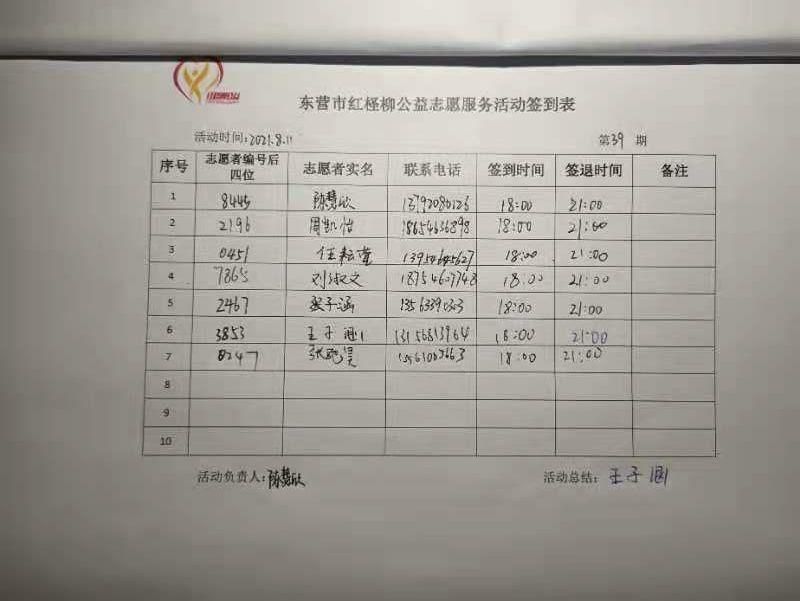 东营市红柽柳公益志愿服务活动签到表
活动时间:2021.8.11 第39期
序号 志愿者编号后四位 志愿者实名 联系电话 签到时间 签退时间 备注
1 8445 陈慧欣 13792080126 18:00 21:00
2 2196 周凯怡 18654636898 18:00 21:00
3 0451 任耘萱 18:00 21:00
4 7865 刘淑文 18754607748 18:00 21:00
5 2467 张子涵 18:00 21:00
6 3853 王子涵 13156813964 18:00 21:00
7 0247 18:00 21:00
8
9
10
活动负责人:陈慧欣 活动总结:王子涵